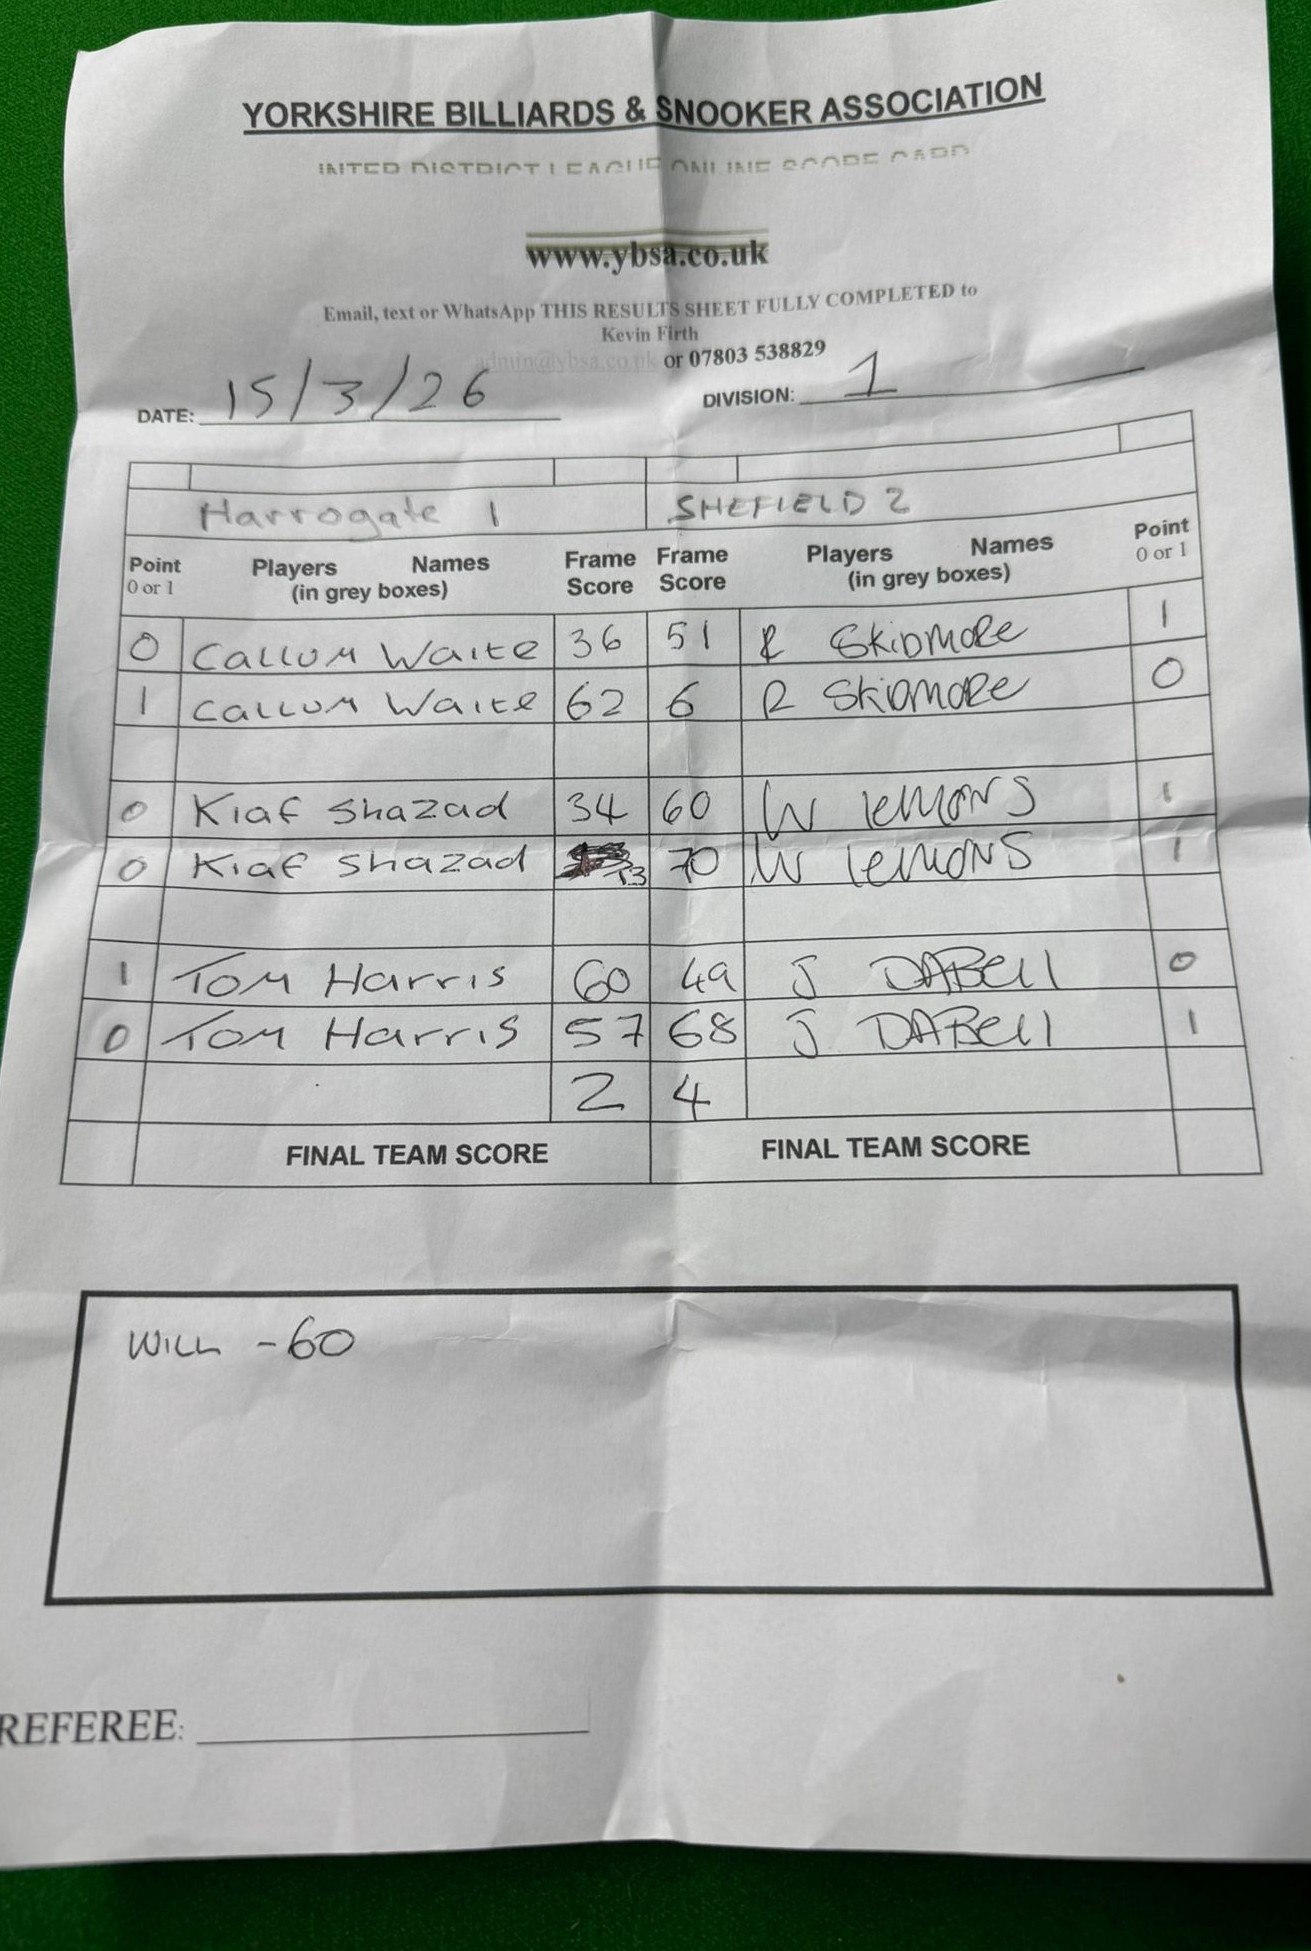 YORKSHIRE BILLIARDS & SNOOKER ASSOCIATION
INTER DISTRICT LEAGUE ONLINE SCORE CARD
www.ybsa.co.uk
Email, text or WhatsApp THIS RESULTS SHEET FULLY COMPLETED to
Kevin Firth
admin@ybsa.co.uk or 07803 538829
DATE: 15/3/26 DIVISION: 1
Harrogate 1 SHEFIELD 2
Point Players Names Frame Frame Players Names Point
0 or 1 (in grey boxes) Score Score (in grey boxes) 0 or 1
0 Callum Waite 36 51 R Skidmore 1
1 Callum Waite 62 6 R Skidmore 0
0 Kiaf Shazad 34 60 W lemons 1
0 Kiaf Shazad 13 70 W lemons 1
1 Tom Harris 60 49 J DABell 0
0 Tom Harris 57 68 J DABell 1
2 4
FINAL TEAM SCORE FINAL TEAM SCORE
WILL - 60
REFEREE: